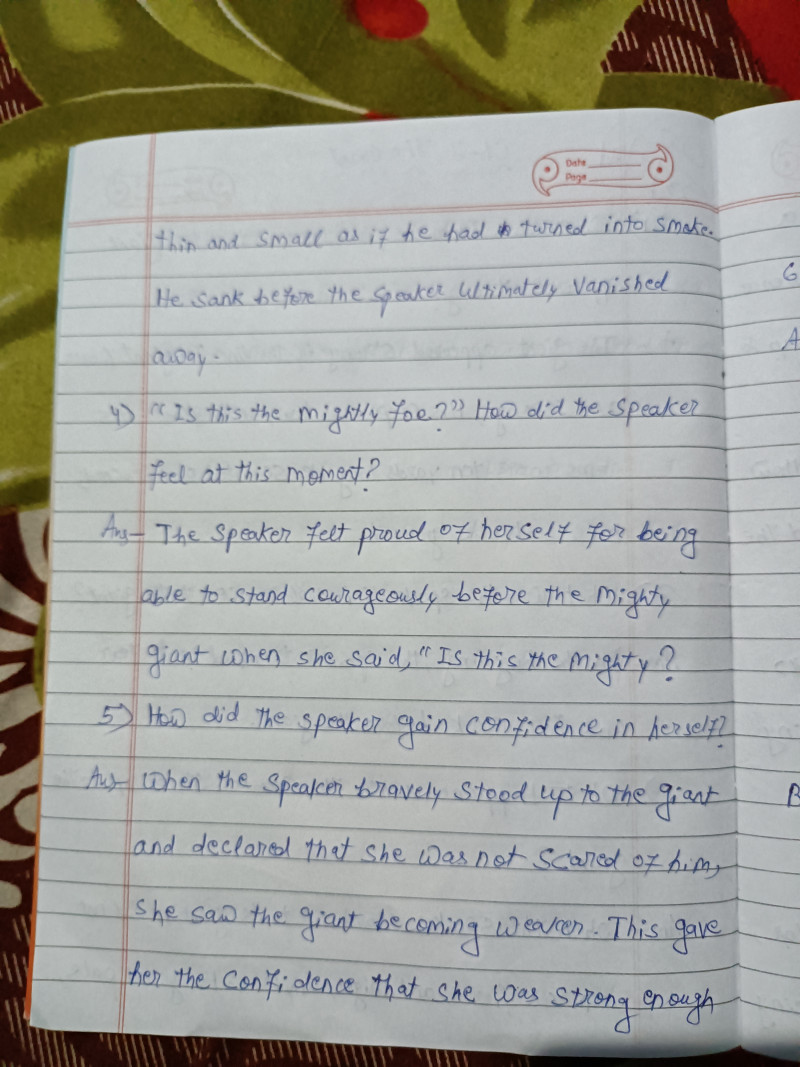 Date
Page
thin and small as if he had turned into smoke.
He sank before the speaker Ultimately vanished
away.
4) "Is this the mightly foe?" How did the speaker
feel at this moment?
Ans- The speaker felt proud of herself for being
able to stand courageously before the mighty
giant when she said, "Is this the mighty?
5) How did the speaker gain confidence in herself?
Ans- When the speaker bravely stood up to the giant
and declared that she was not scared of him,
she saw the giant becoming weaker. This gave
her the confidence that she was strong enough
G
A
B